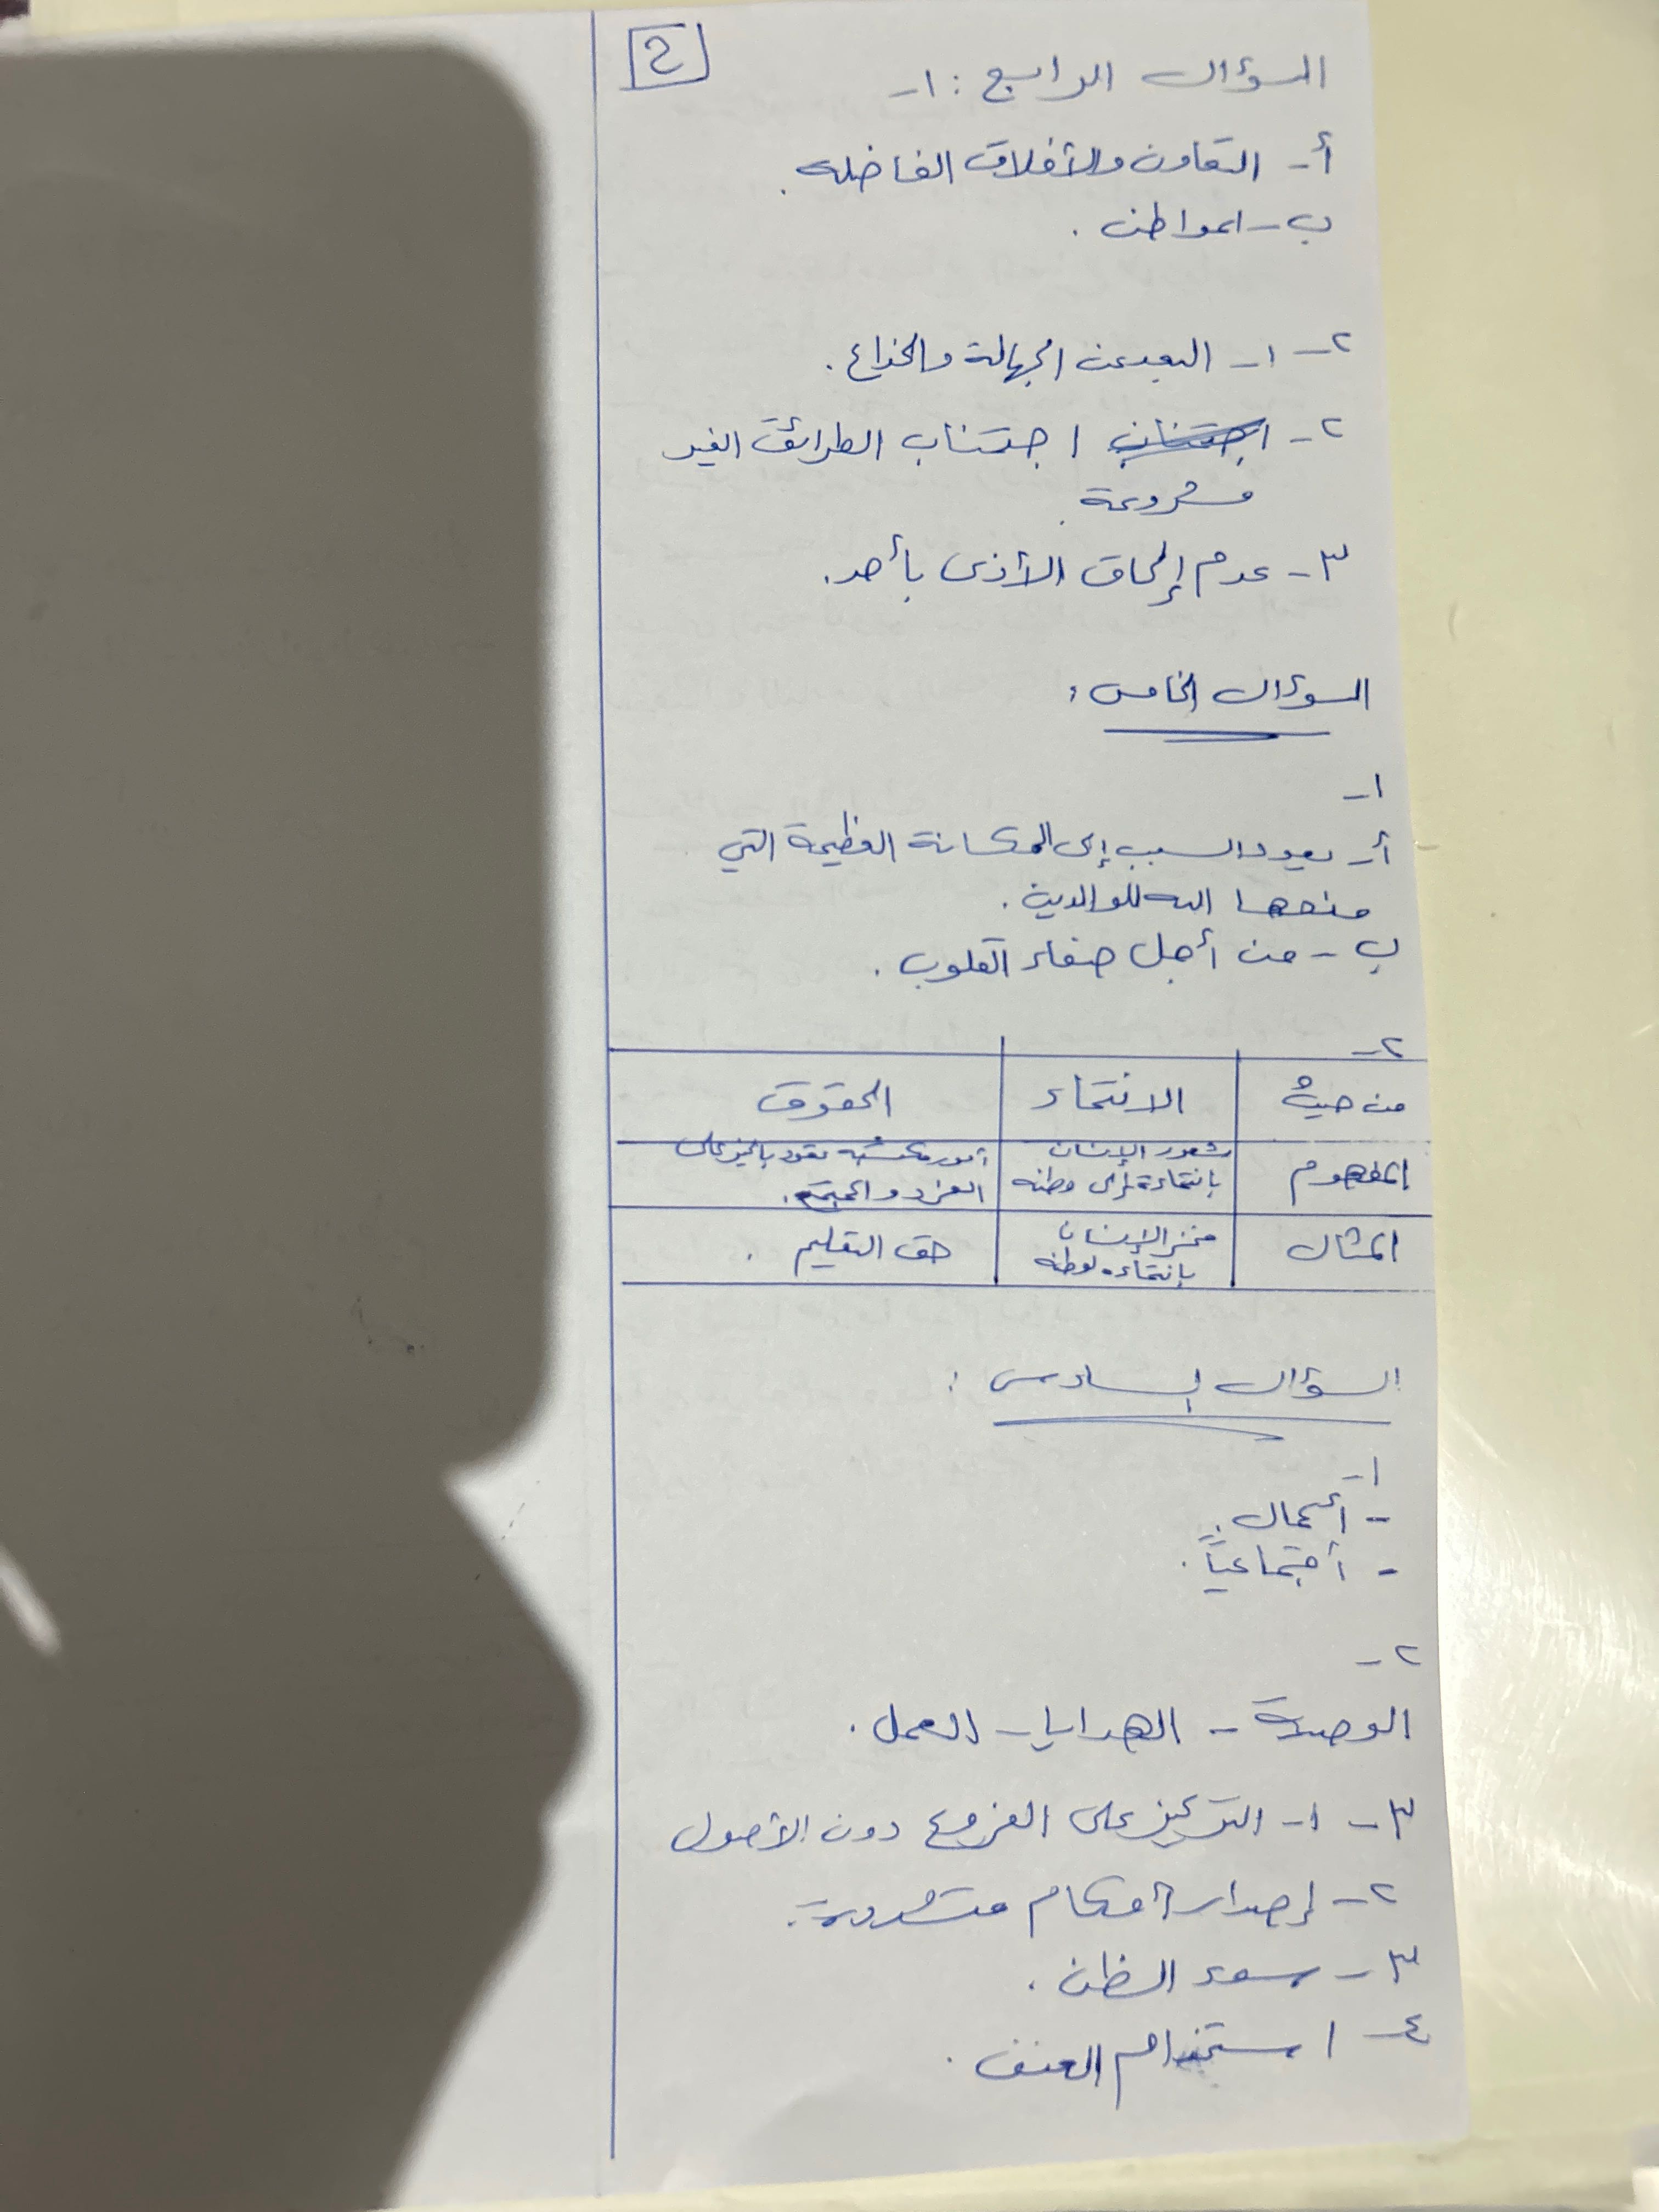 ٢
السؤال الرابع : ١-
أ- التعاون والأخلاق الفاضله .
ب- المواطن .
٢- ١- البعد عن الجهالة والخداع .
٢- اجتناب اجتناب الطرائق الغير
مشروعة .
٣- عدم إلحاق الأذى بأحد .
السؤال الخامس :
١-
أ- يعود السبب إلى المكانة العظيمة التي
منحها الله للوالدين .
ب- من أجل صفاء القلوب .
٢-
من حيث الانتماء الحقوق
المفهوم شعور الإنسان أمور مكتسبة تعود بالخير على
بانتماءه إلى وطنه الفرد والمجتمع .
المثال فخر الإنسان حق التعليم .
بإنتماءه لوطنه
السؤال السادس :
١-
- أعمال .
- اجتماعياً .
٢-
الوصية - الهدايا - العمل .
٣- ١- التركيز على الفروع دون الأصول
٢- إصدار أحكام متسرعة .
٣- سوء الظن .
٤- استخدام العنف .